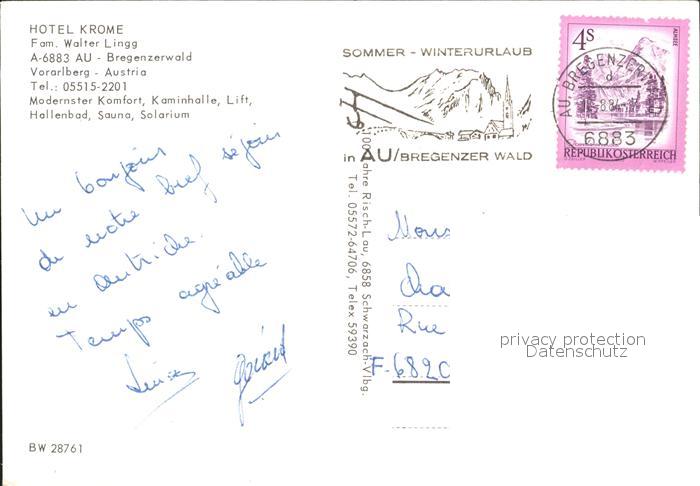 HOTEL KROME
Fam. Walter Lingg
A-6883 AU - Bregenzerwald
Vorarlberg - Austria
Tel.: 05515-2201
Modernster Komfort, Kaminhalle, Lift,
Hallenbad, Sauna, Solarium
SOMMER - WINTERURLAUB
in AU/BREGENZER WALD
AU, BREGENZER
d
6883
4S
ALMSEE
REPUBLIK ÖSTERREICH
Un bonjour
de notre bref séjour
en Autriche.
Temps agréable
Gérard
Jahre Risch-Lau, 6858 Schwarzach-Vlbg.
Tel. 05572-64706, Telex 59390
Mons
Cha
Rue
F-6820
privacy protection
Datenschutz
BW 28761